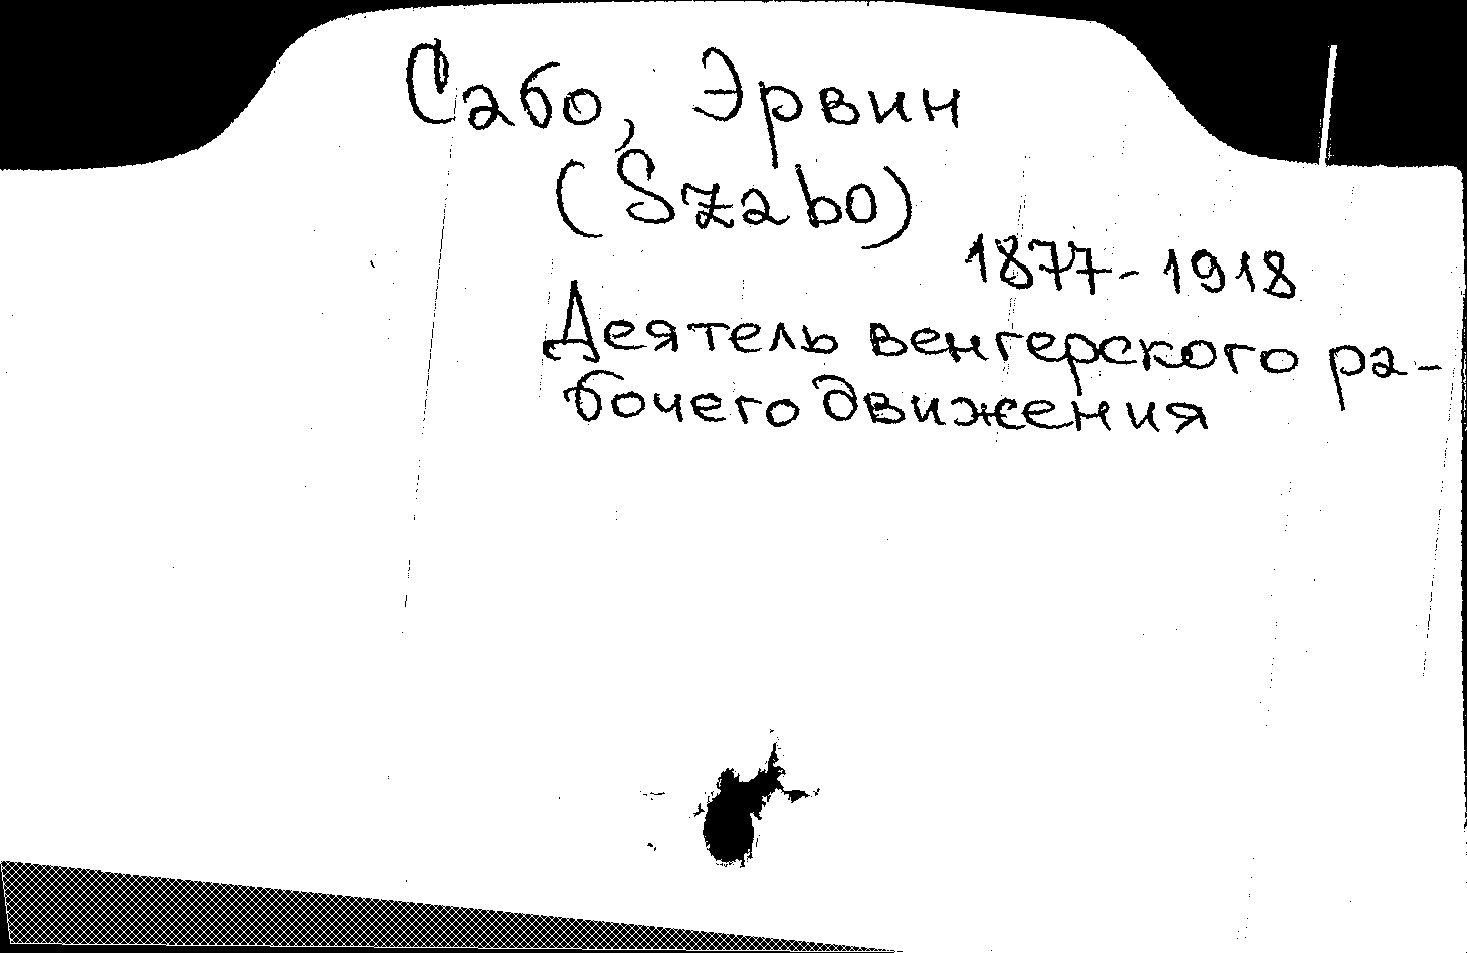 Сабо, Эрвин
(Szabo)
1877-1918
Деятель венгерского ра-
бочего движения